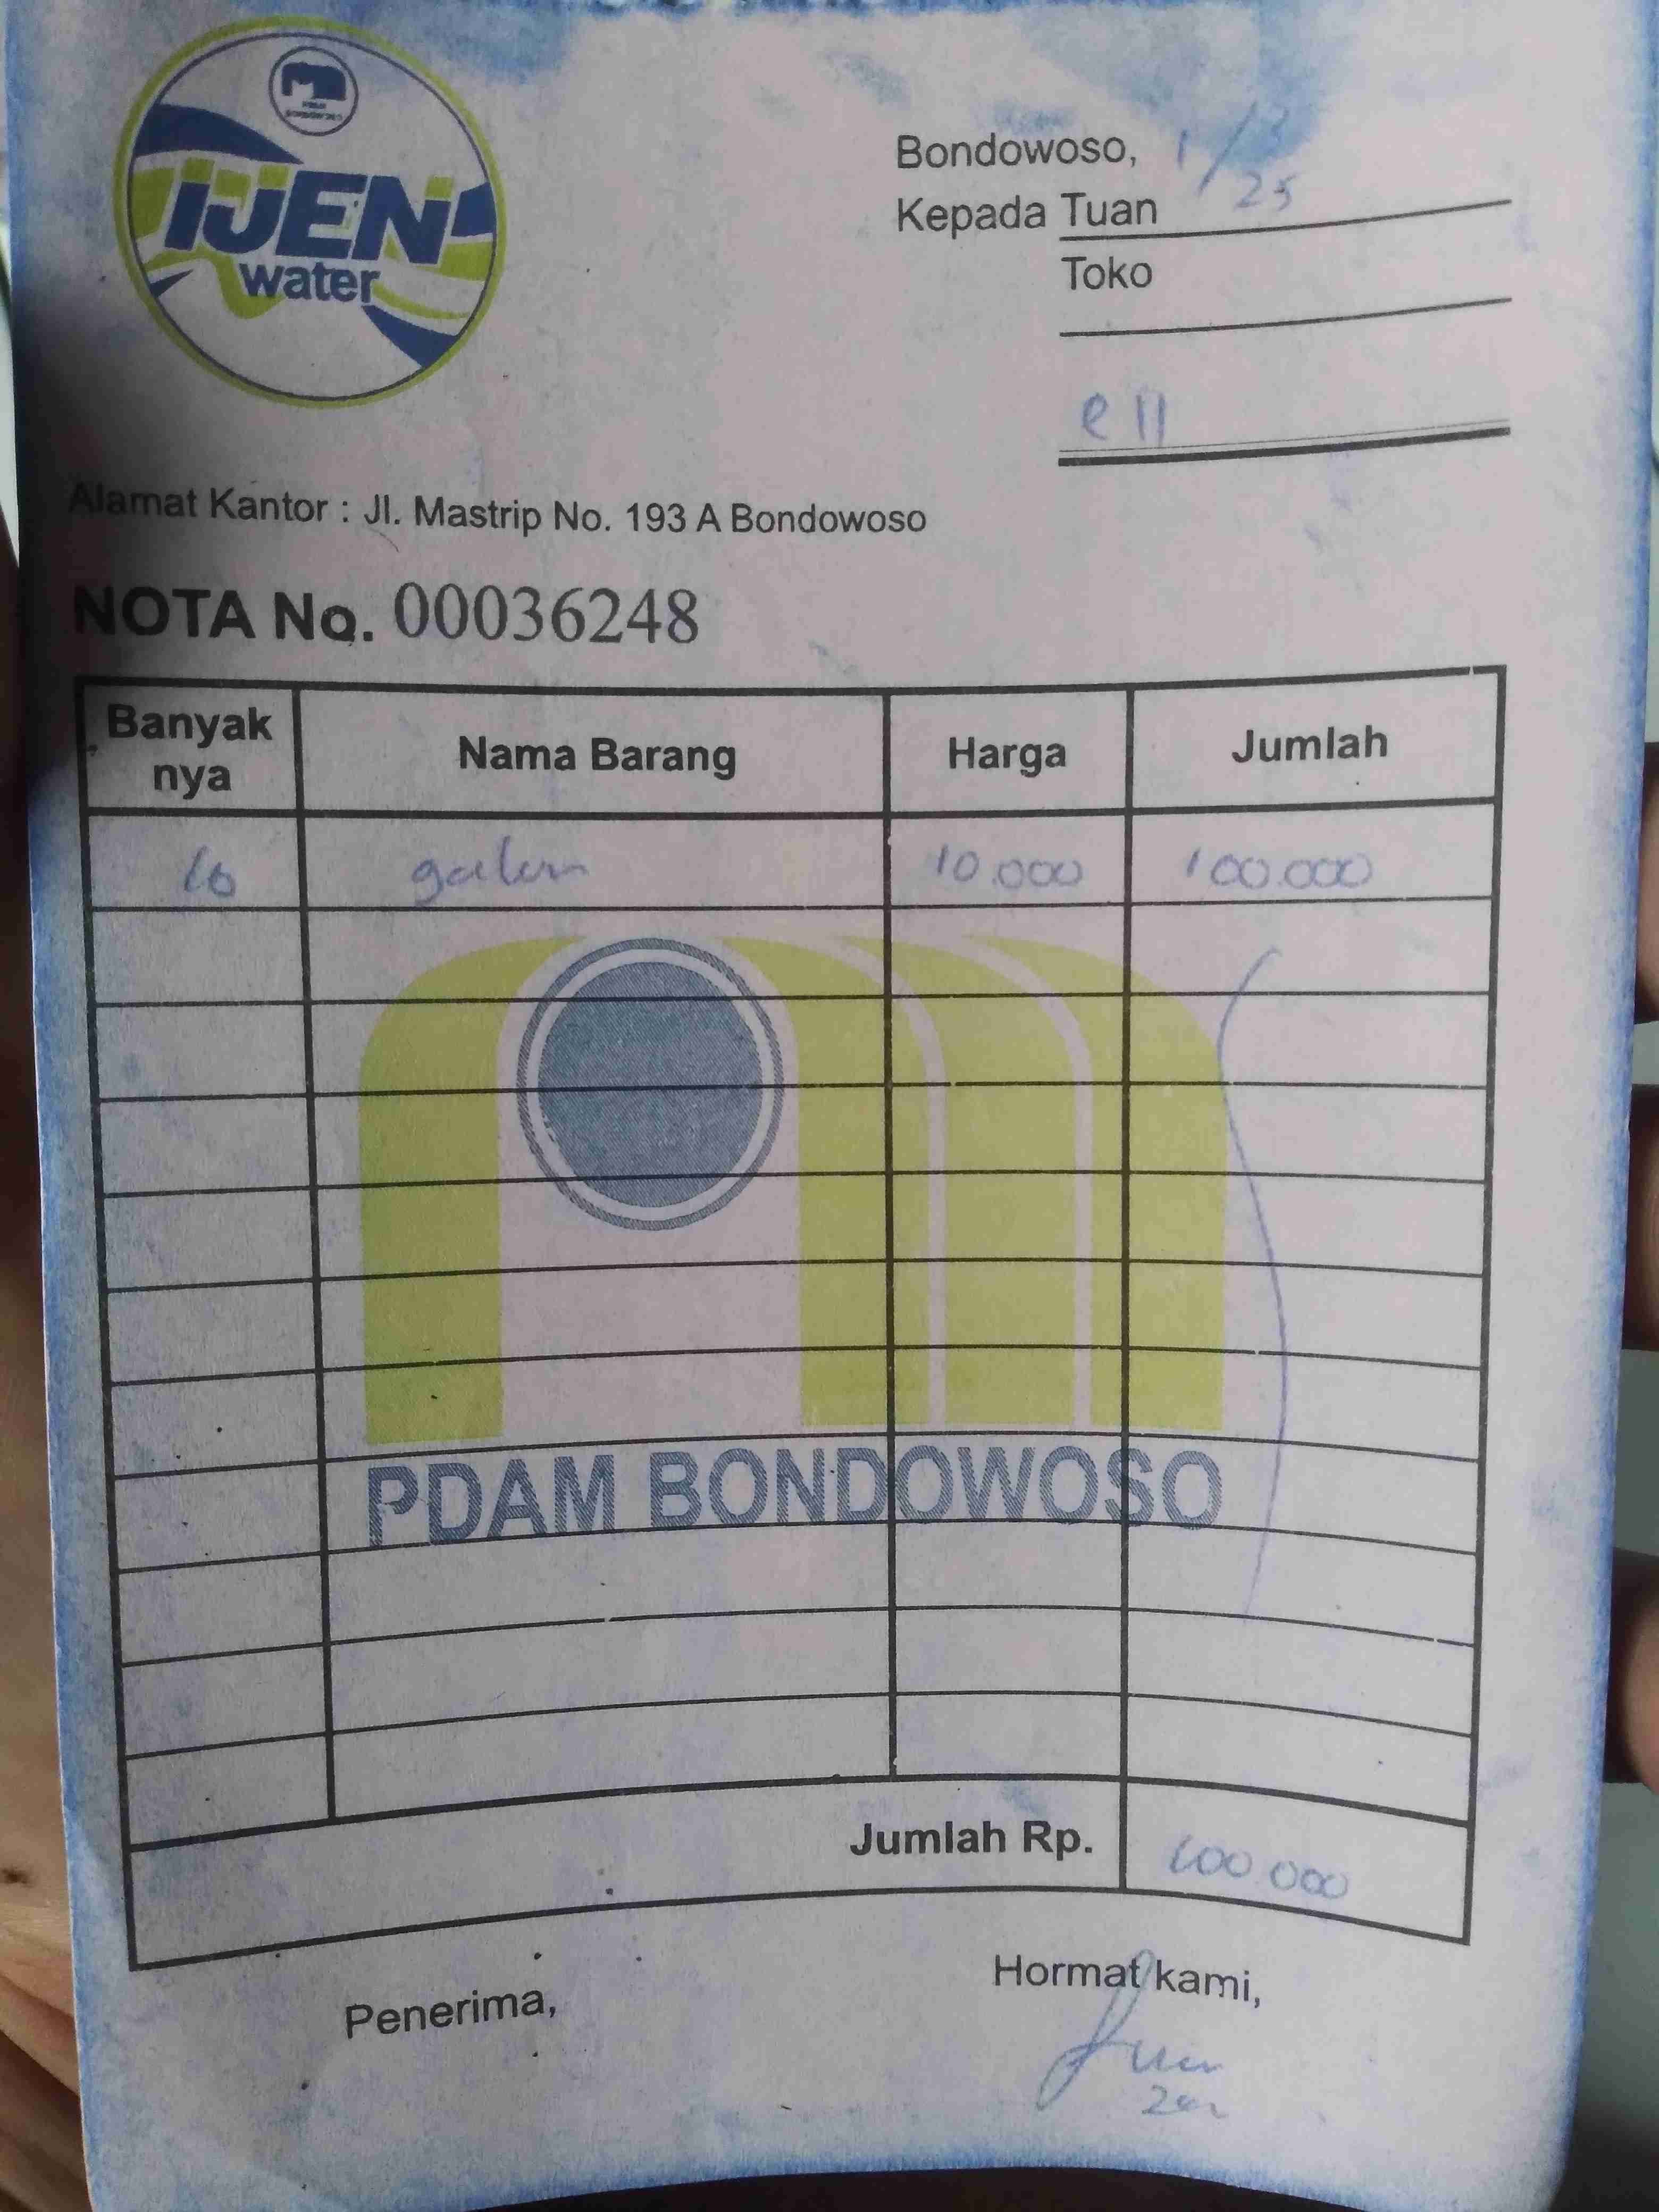 IJEN
water
Bondowoso, 1/3
25
Kepada Tuan
Toko
ell
Alamat Kantor : Jl. Mastrip No. 193 A Bondowoso
NOTA No. 00036248
Banyak nya Nama Barang Harga Jumlah
10 galon 10.000 100.000
PDAM BONDOWOSO
Jumlah Rp. 100.000
Penerima, Hormat kami,